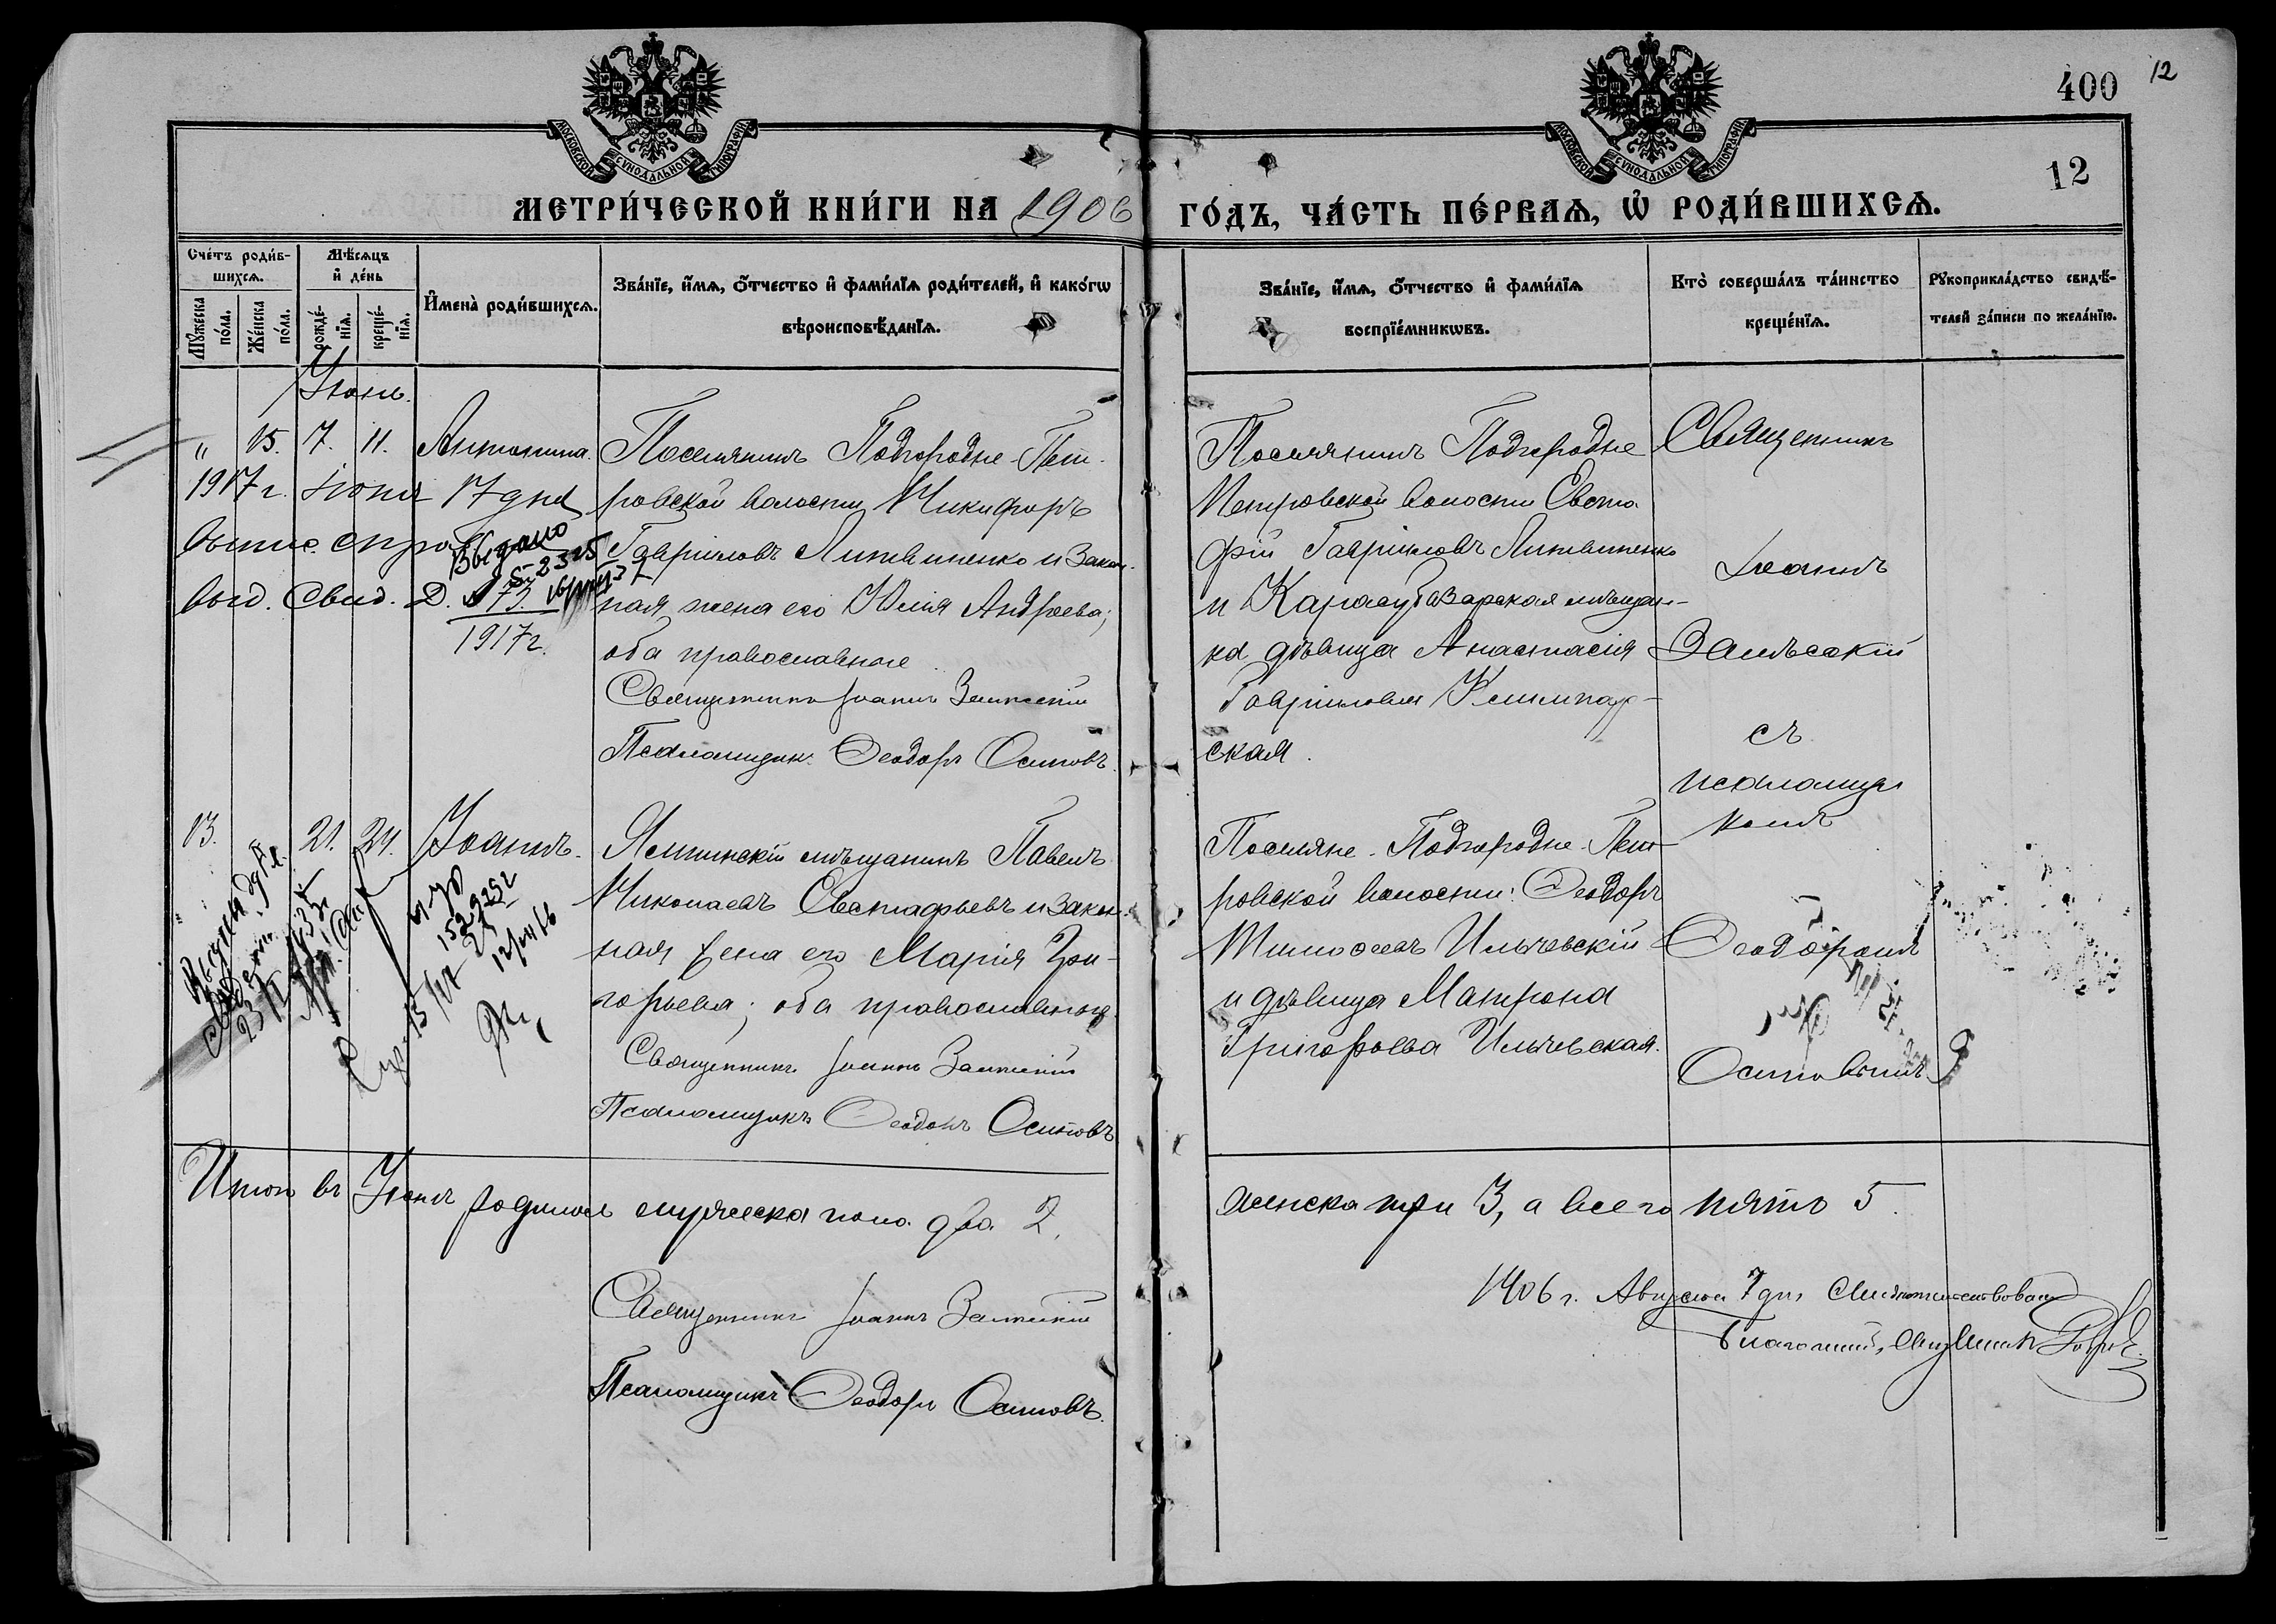 400
12
12
МОСКОВСКОЙ СѴНОДАЛЬНОЙ ТИПОГРАФІИ
МОСКОВСКОЙ СѴНОДАЛЬНОЙ ТИПОГРАФІИ
МЕТРИ́ЧЕСКОЙ КНИ́ГИ НА 1906
ГО́ДЪ, ЧА́СТЬ ПЕ́РВАѦ, Ѽ РОДИ́ВШИХСѦ.
Сче́тъ роди́в-
шихсѧ.
Мꙋ́жеска по́ла.
Же́нска по́ла.
Мѣ́сѧцъ
и҆ де́нь
рожде́-
нїѧ.
креще́-
нїѧ.
И҆мена̀ роди́вшихсѧ.
Зва́нїе, и҆́мѧ, ѻ҆́тчество и҆ фами́лїѧ роди́телей, и҆ како́гѡ
вѣроисповѣ́данїѧ.
Зва́нїе, и҆́мѧ, ѻ҆́тчество и҆ фами́лїѧ
воспрїе́мникѡвъ.
Кто̀ соверша́лъ та́инство
креще́нїѧ.
Рꙋкоприкла́дство свидѣ́-
телей за́писи по жела́нїю.
Іюнь.
" 15. 7. 11. Антонина.
1917 г. іюня 17 дня
выпис. справ.
Выдано
выд. свид.
1917 г.
Поселянинъ Подгородне-Пет-
ровской волости Никифоръ
Гавріиловъ Литвиненко и закон-
ная жена его Юлія Андреева;
оба православные
Священникъ Іоаннъ Залѣсскій
Псаломщикъ Ѳеодоръ Осиповъ.
Поселянинъ Подгородне
Петровской волости Евста
фій Гавріиловъ Литвиненко
и Карасубазарская мѣщан-
ка дѣвица Анастасія
Гавріилова
ская.
Священникъ
Іоаннъ
Залѣсскій
съ
псаломщи
комъ
Ѳеодоромъ
Осиповымъ
13. 21. 24. Іоаннъ.
Ялтинскій мѣщанинъ Павелъ
Николаевъ Евстафьевъ и закон-
ная жена его Марія Гри-
горьева; оба православные
Священникъ Іоаннъ Залѣсскій
Псаломщикъ Ѳеодоръ Осиповъ
Поселяне Подгородне-Пет-
ровской волости: Ѳеодоръ
Тимоѳеевъ Ильчевскій
и дѣвица Матрона
Григорьева Ильчевская.
Итого въ Іюнѣ родилось мужеска пола два 2,
женска три 3, а всего пять 5.
Священникъ Іоаннъ Залѣсскій
Псаломщикъ Ѳеодоръ Осиповъ.
1906 г. Августа 7 дня свидѣтельствовалъ
Благочинный, Священникъ